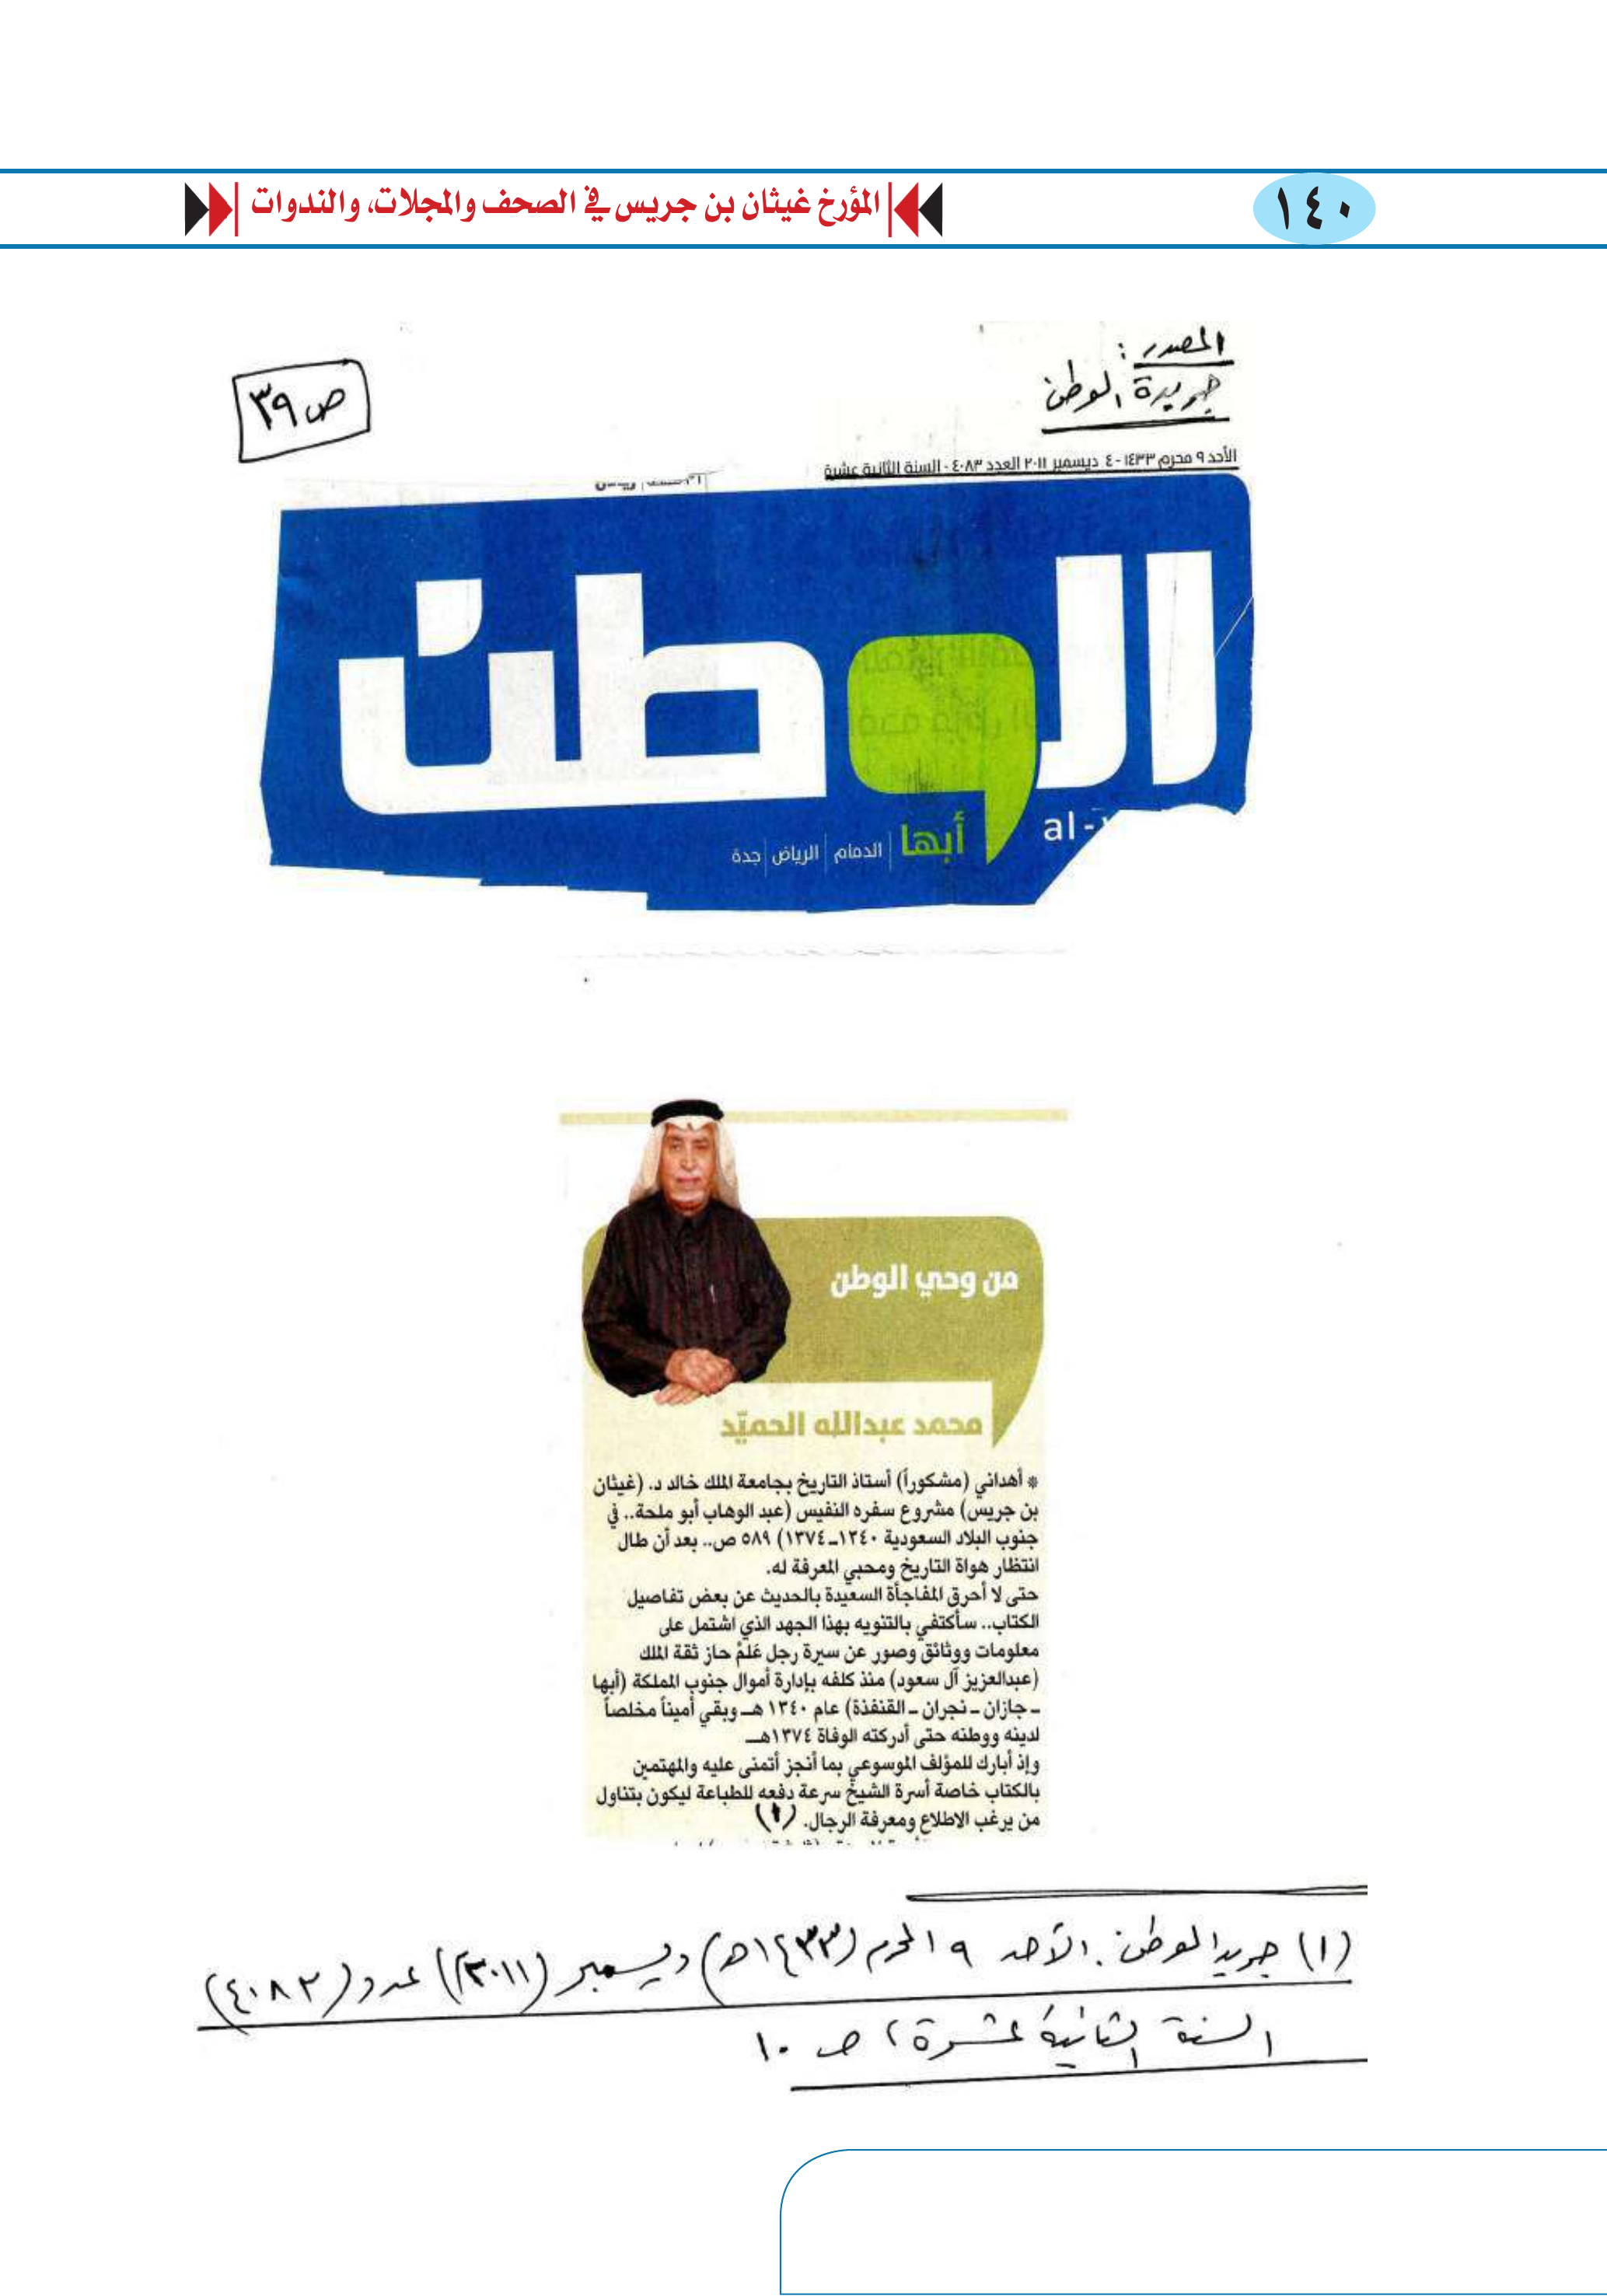 ١٤٠
المؤرخ غيثان بن جريس في الصحف والمجلات، والندوات
المصدر:
جريدة الوطن
ص ٣٩
الأحد ٩ محرم ١٤٣٣ - ٤ ديسمبر ٢٠١١ العدد ٤٠٨٣ - السنة الثانية عشرة
الوطن
al-
أبها | الدمام | الرياض | جدة
من وحي الوطن
محمد عبدالله الحميّد
* أهداني (مشكوراً) أستاذ التاريخ بجامعة الملك خالد د. (غيثان
بن جريس) مشروع سفره النفيس (عبد الوهاب أبو ملحة.. في
جنوب البلاد السعودية ١٣٤٠ــ١٣٧٤) ٥٨٩ ص.. بعد أن طال
انتظار هواة التاريخ ومحبي المعرفة له.
حتى لا أحرق المفاجأة السعيدة بالحديث عن بعض تفاصيل
الكتاب.. سأكتفي بالتنويه بهذا الجهد الذي اشتمل على
معلومات ووثائق وصور عن سيرة رجل عَلمْ حاز ثقة الملك
(عبدالعزيز آل سعود) منذ كلفه بإدارة أموال جنوب المملكة (أبها
ـ جازان ـ نجران ـ القنفذة) عام ١٣٤٠ هــ وبقي أميناً مخلصاً
لدينه ووطنه حتى أدركته الوفاة ١٣٧٤هــ
وإذ أبارك للمؤلف الموسوعي بما أنجز أتمنى عليه والمهتمين
بالكتاب خاصة أسرة الشيخ سرعة دفعه للطباعة ليكون بتناول
من يرغب الاطلاع ومعرفة الرجال. (١)
(١) جريدة الوطن. الأحد ٩ المحرم (١٤٣٣هـ) ديسمبر (٢٠١١م) عدد (٤٠٨٣)
السنة الثانية عشرة، ص ١٠